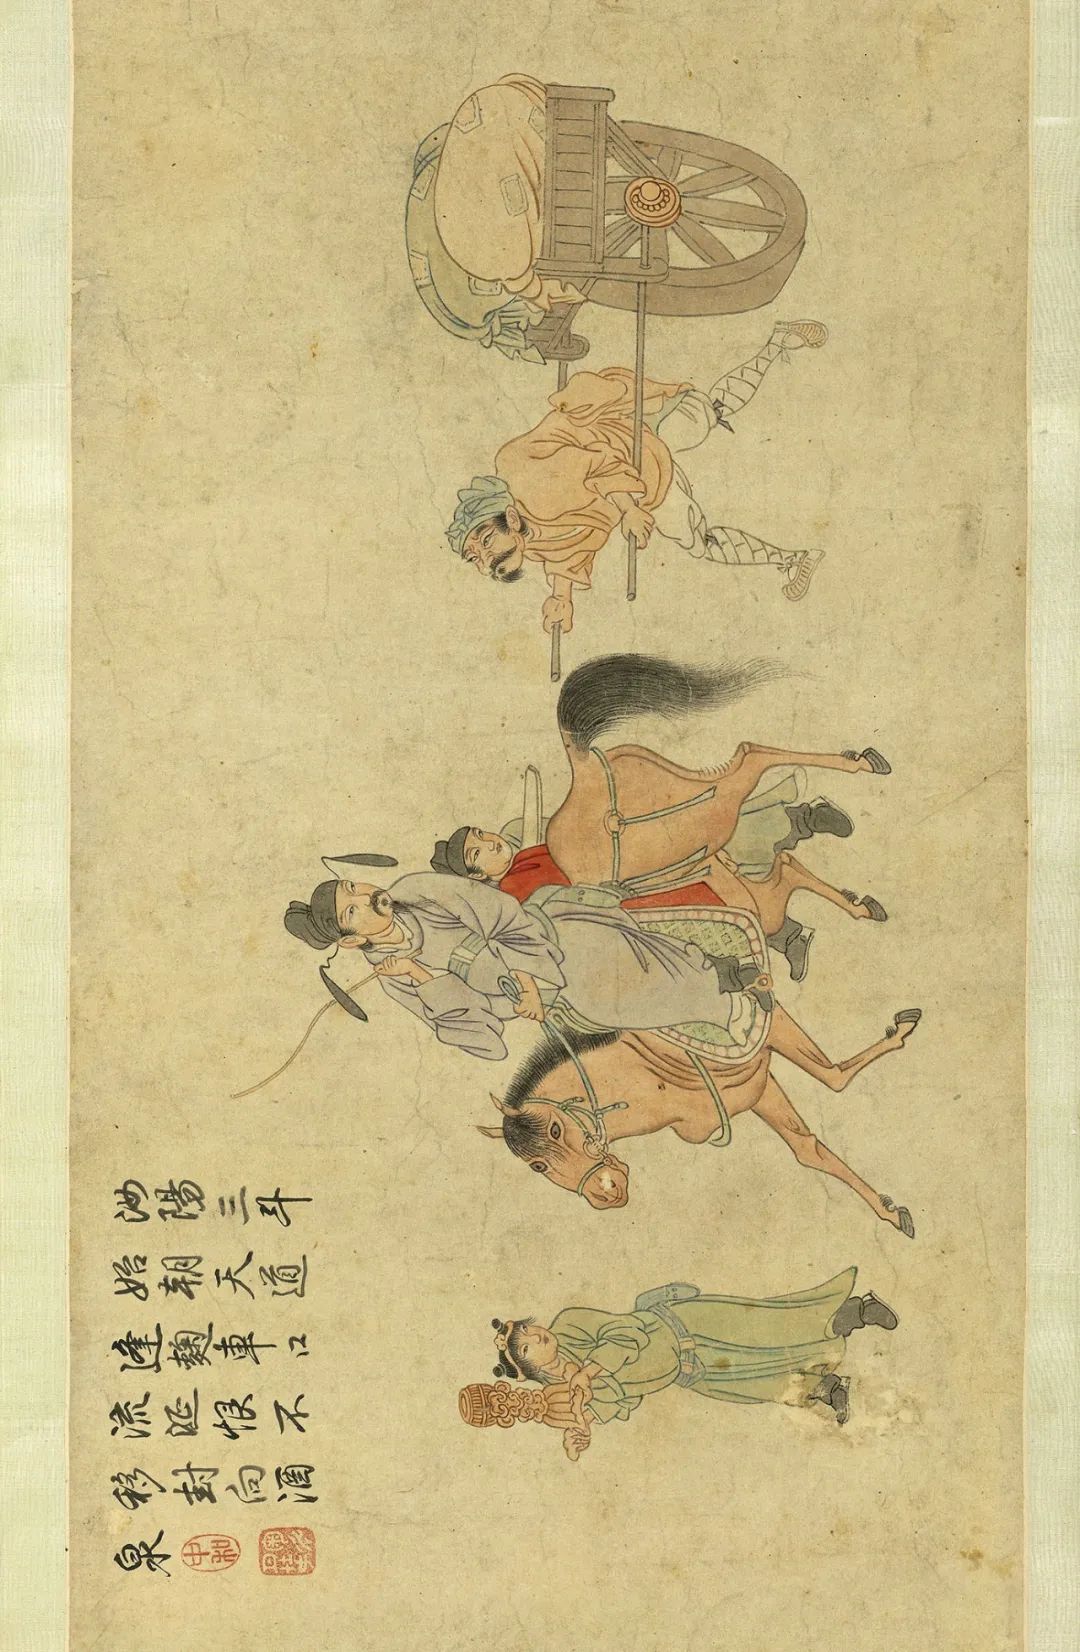 汝陽三斗
始朝天道
逢麹車口
流涎恨不
移封向酒
泉
中和